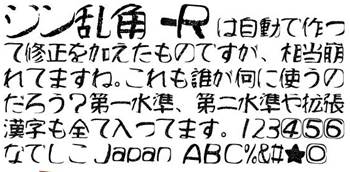 ジン乱角-Rは自動で作っ
て修正を加えたものですが、相当崩
れてますね。これも誰が何に使うの
だろう？第一水準、第二水準や拡張
漢字も全て入ってます。123456
なでしこ Japan ABC%&#★◎